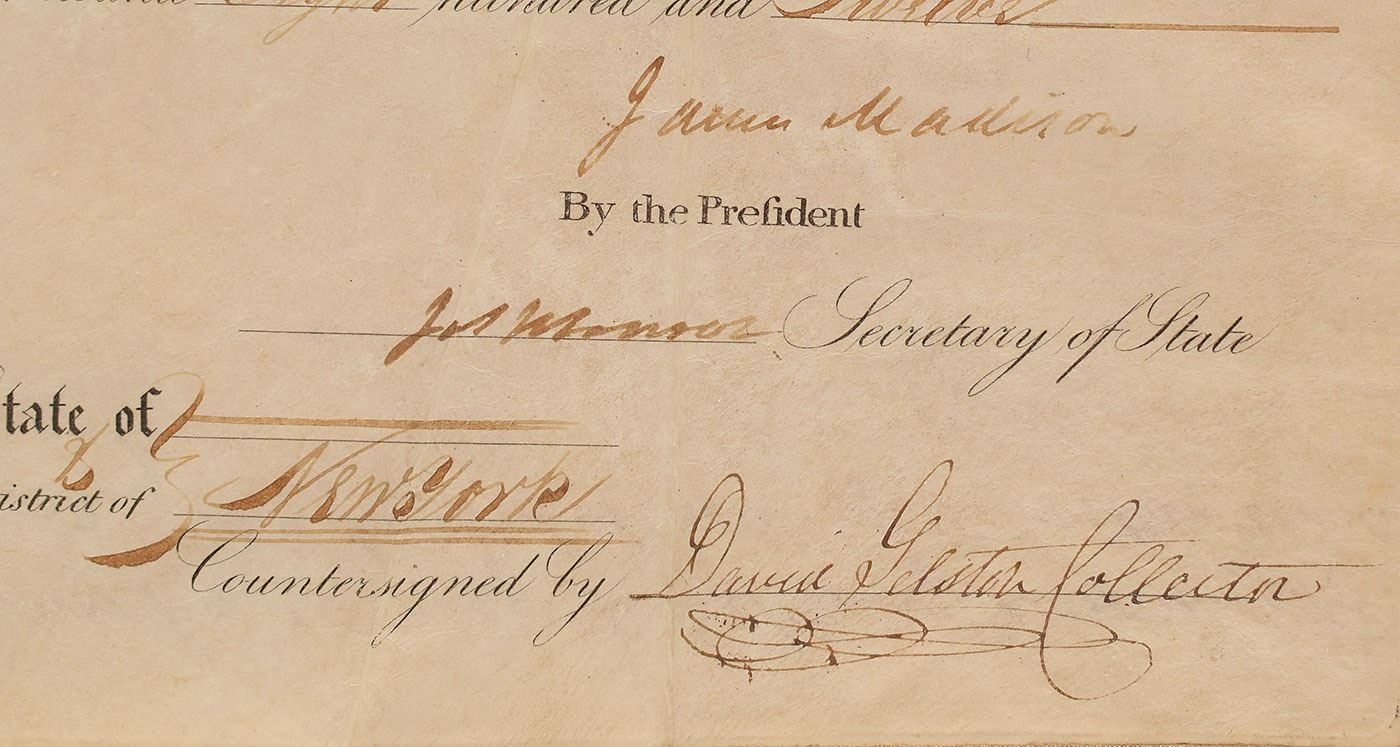 Eight hundred and Twelve
James Madison
By the Preſident
Jas Monroe Secretary of State
tate of
istrict of New York
Countersigned by David Gelston Collector